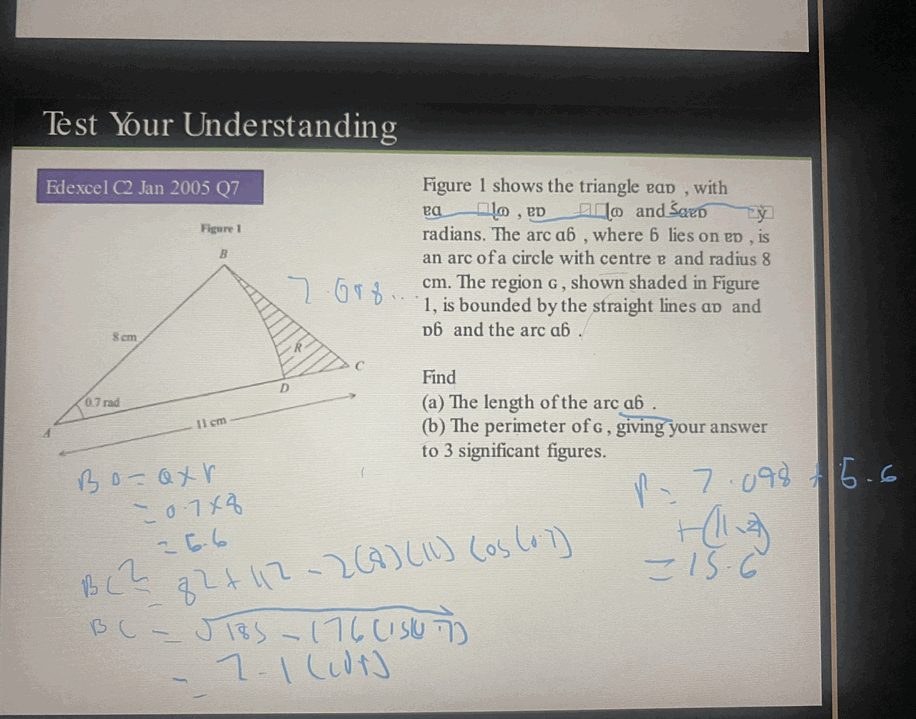 Test Your Understanding
Edexcel C2 Jan 2005 Q7
Figure 1
B
8 cm
R
C
D
0.7 rad
A
11 cm
Figure 1 shows the triangle , with
, and
radians. The arc , where lies on , is
an arc of a circle with centre and radius 8
cm. The region , shown shaded in Figure
1, is bounded by the straight lines and
and the arc .
Find
(a) The length of the arc .
(b) The perimeter of , giving your answer
to 3 significant figures.
7.098...
BD = θ×r
= 0.7×8
= 5.6
BC² = 8² + 11² - 2(8)(11) cos(0.7)
BC = √185 - 176
= 7.1
P = 7.098 + 5.6
= 15.6